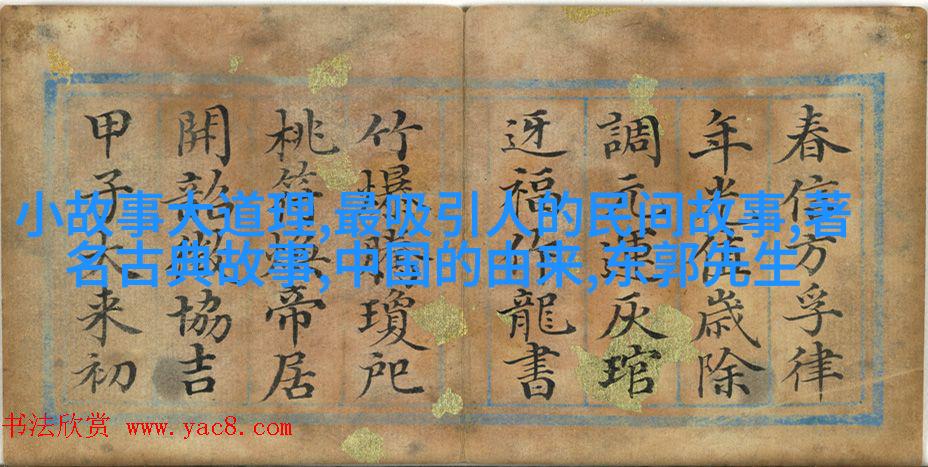 春信方孚律
年光歲除
調元灰琯
迓福龍書
竹爆瓊戺
桃符帝居
開韶協吉
甲子大来初
小故事大道理,最吸引人的民间故事,著
名古典故事,中国的由来,东郭先生
书法欣赏 www.yac8.com